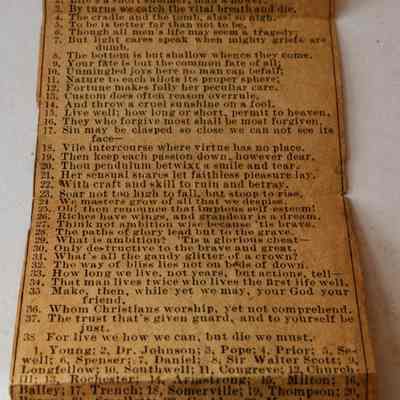 2. Life's a short summer, man a flower.
3. By turns we catch the vital breath and die.
4. The cradle and the tomb, alas! so nigh.
5. To be is better far than not to be,
6. Though all men's life may seem a tragedy;
7. But light cares speak when mighty griefs are
dumb,
8. The bottom is but shallow whence they come.
9. Your fate is but the common fate of all;
10. Unmingled joys here no man can befall;
11. Nature to each allots its proper sphere;
12. Fortune makes folly her peculiar care.
13. Custom does often reason overrule,
14. And throw a cruel sunshine on a fool.
15. Live well; how long or short, permit to heaven,
16. They who forgive most shall be most forgiven.
17. Sin may be clasped so close we can not see its
face—
18. Vile intercourse where virtue has no place.
19. Then keep each passion down, however dear,
20. Thou pendulum betwixt a smile and tear.
21. Her sensual snares let faithless pleasure lay,
22. With craft and skill to ruin and betray.
23. Soar not too high to fall, but stoop to rise,
24 We masters grow of all that we despise.
25. Oh! then renounce that impious self-esteem!
26. Riches have wings, and grandeur is a dream.
27. Think not ambition wise because 'tis brave.
28. The paths of glory lead but to the grave.
29. What is ambition? 'Tis a glorious cheat—
30. Only destructive to the brave and great.
31. What's all the gaudy glitter of a crown?
32. The way of bliss lies not on beds of down.
33. How long we live, not years, but actions, tell—
34. That man lives twice who lives the first life well.
35 Make, then, while yet we may, your God your
friend,
36. Whom Christians worship, yet not comprehend.
37. The trust that's given guard, and to yourself be
just,
38 For live we how we can, but die we must.
1, Young; 2, Dr. Johnson; 3, Pope; 4, Prior; 5, Se-
well; 6, Spenser; 7, Daniel; 8, Sir Walter Scott; 9,
Longfellow; 10, Southwell; 11, Congreve; 12, Church-
ill; 13, Rochester; 14, Armstrong; 15, Milton; 16,
Bailey; 17, Trench; 18, Somerville; 19, Thompson; 20,